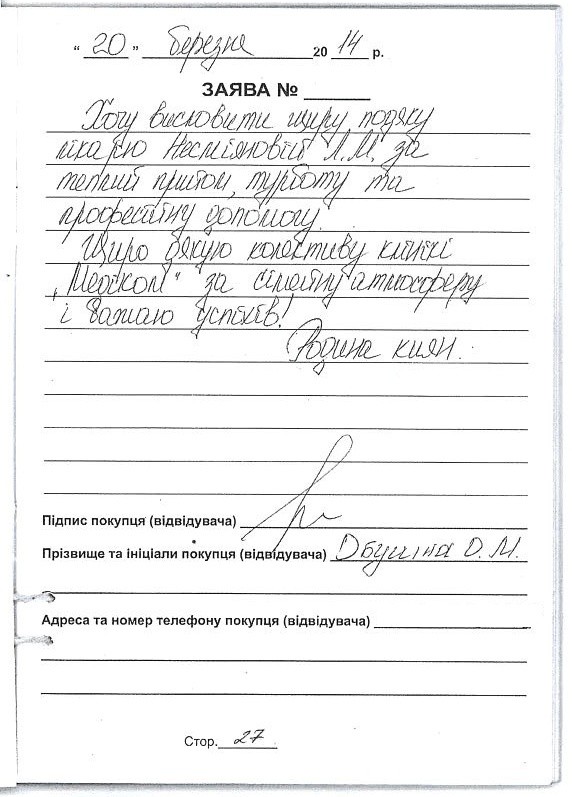 “ 20 ” березня 2014 р.
ЗАЯВА №
Хочу висловити щиру подяку
лікарю Несміяновій Л.М. за
теплий прийом, турботу та
професійну допомогу.
Щиро дякую колективу клініки
„Медіком“ за сімейну атмосферу
і бажаю успіхів!
Родина киян.
Підпис покупця (відвідувача)
Прізвище та ініціали покупця (відвідувача) О. М.
Адреса та номер телефону покупця (відвідувача)
Стор. 27